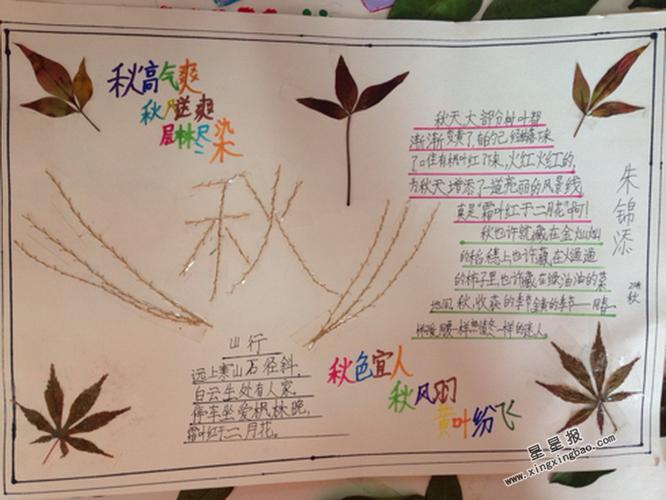 秋高气爽
秋风送爽
层林尽染
秋
山行
远上寒山石径斜,
白云生处有人家
停车坐爱枫林晚,
霜叶红于二月花。
秋天大部分树叶都
渐渐变黄了,有的已经
了,唯有枫叶红了起来,火红火红的,
为秋天增添了一道亮丽的风景线
真是“霜叶红于二月花”啊!
秋也许就藏在金灿灿
的稻穗上也许藏在火通通
的柿子里,也许藏在绿油油的菜
地间,秋,收获的季节
一样的迷人。
朱锦添
秋
秋色宜人
秋风羽
黄叶纷飞
星星报
www.xingxingbao.com